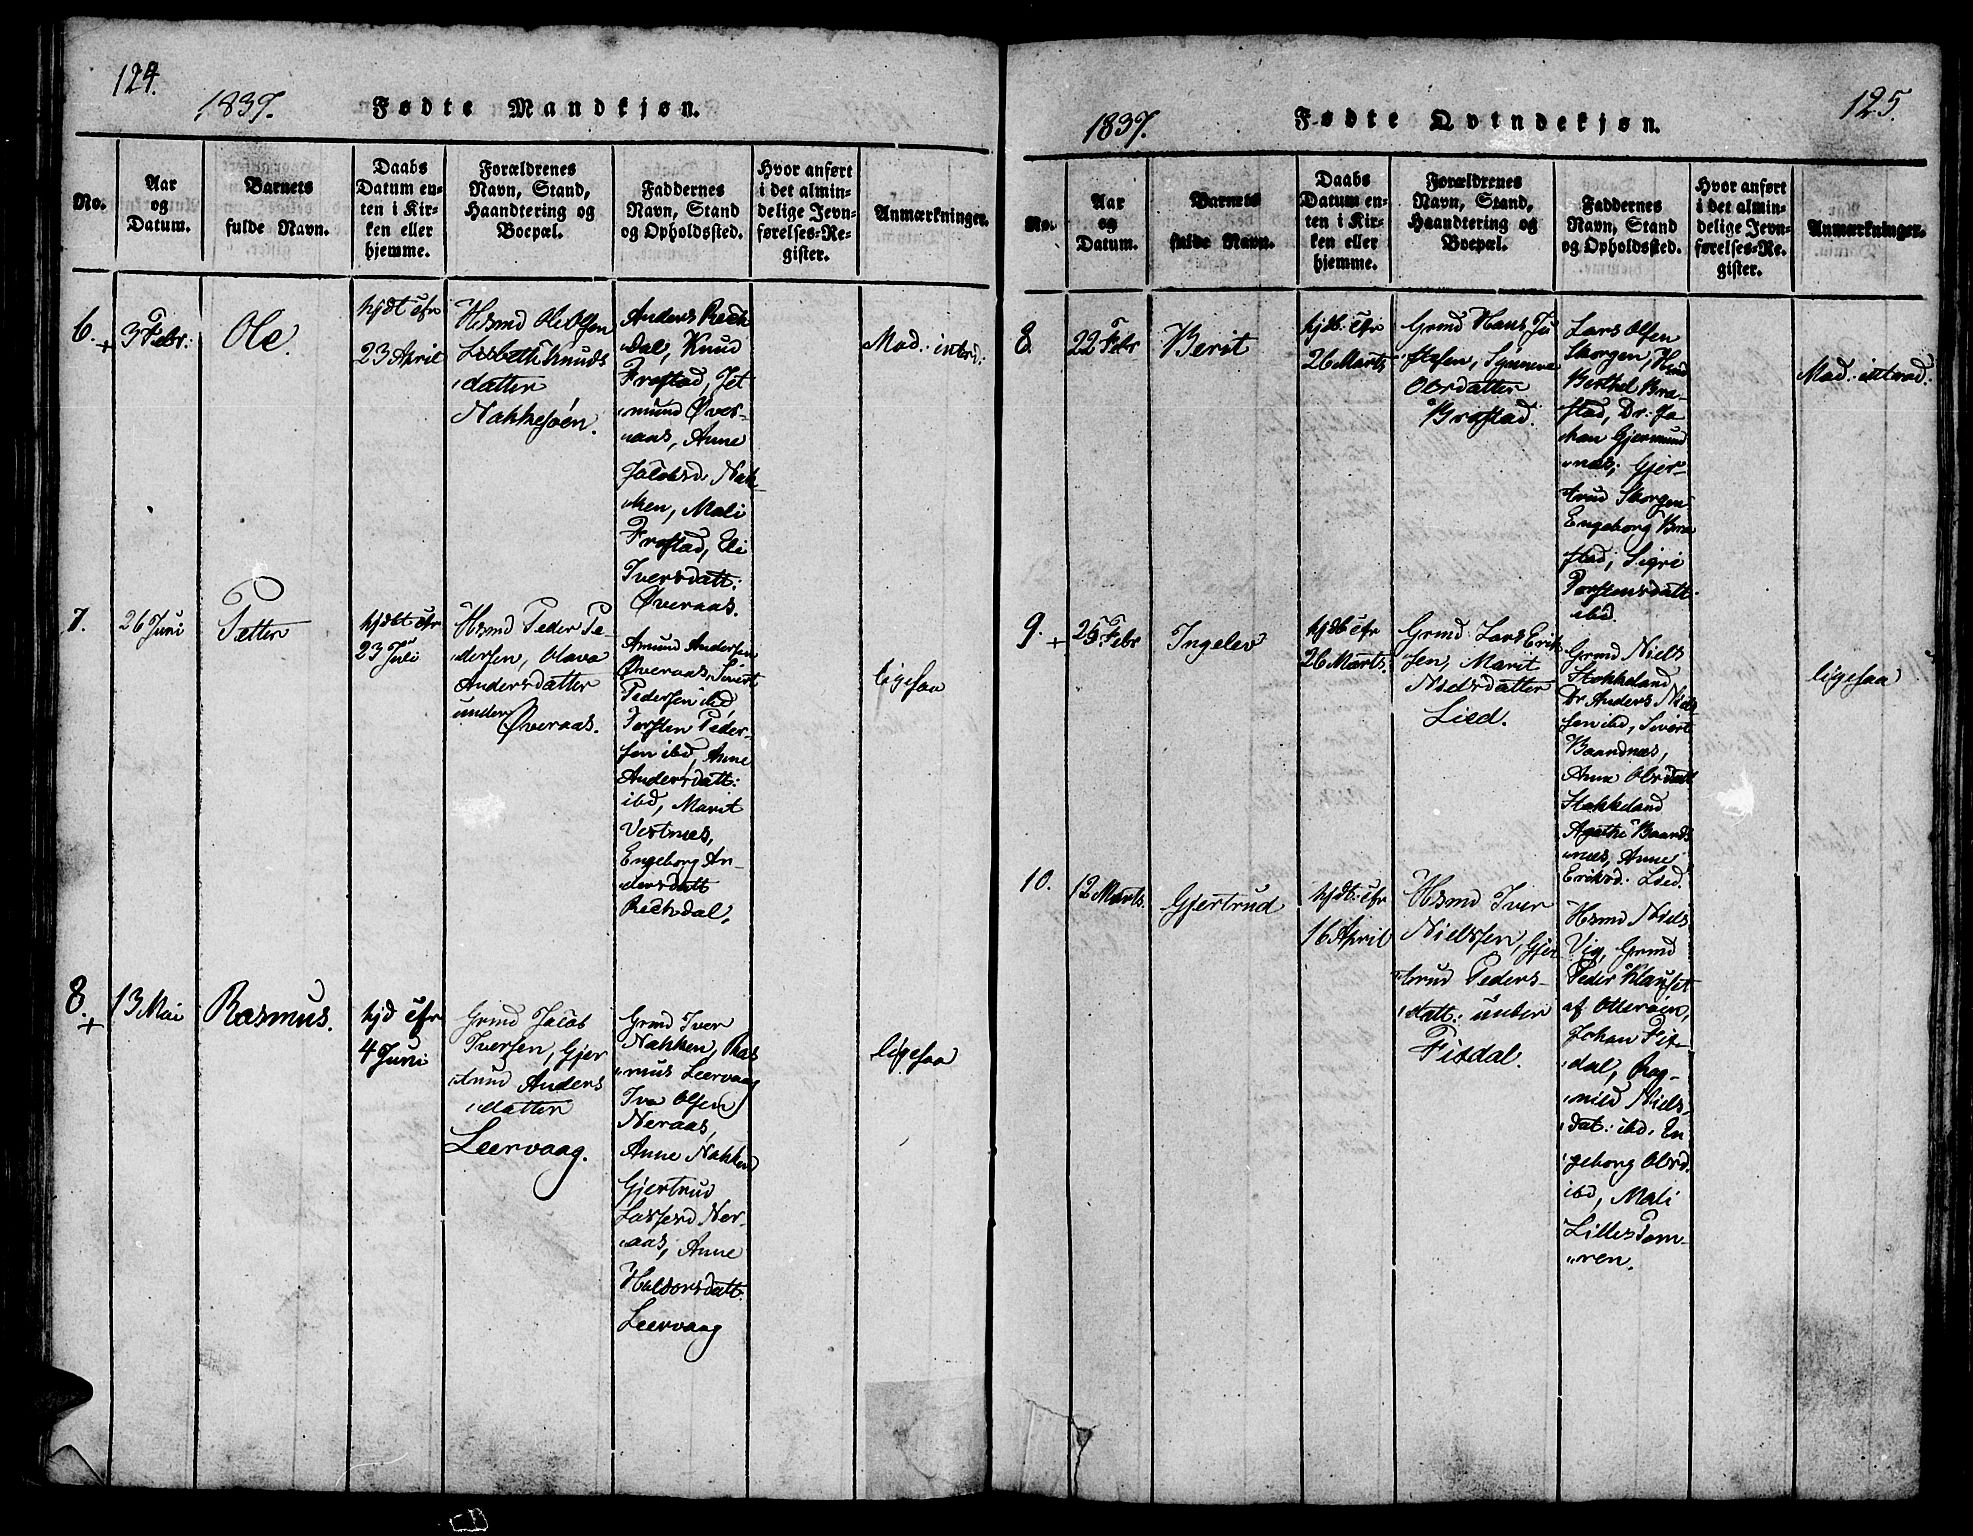 124.
1837. Fødte Mandkjøn.
No.
Aar
og
Datum.
Barnets
fulde Navn.
Daabs
Datum en-
ten i Kir-
ken eller
hjemme.
Forældrenes
Navn, Stand,
Haandtering og
Boepæl.
Faddernes
Navn, Stand
og Opholdssted.
Hvor anført
i det almin-
delige Jevn-
førelses-Re-
gister.
Anmærkninger.
6. +
3 Febr:
Ole.
hjdt cfr
23 April
Hsmd Ole Olsen
Lisbeth Knuds
datter
Nakkesøen.
Anders Rech
dal, Knud
Frostad, Jet
mund Øver-
aas, Anne
Jacobsd: Nak-
ken, Mali
Frostad, Eli
Iversdatt:
Øveraas.
Mod: intrd:
7.
26 Juni
Petter
hjdbt cfr
23 Juli
Hsmd Peder Pe-
dersen, Olava
Andersdatter
under Øveraas.
Amund Andersen
Øveraas, Sivert
Pedersen ibd,
Torsten Peder-
sen ibd, Anne
Andersdatt:
ibd, Marit
Vestnæs,
Engeborg An-
dersdatt
Rechdal.
ligesaa
8. +
13 Mai
Rasmus.
hjd cfr
4 Juni
Grmd Jacob
Iversen, Gjer
trud Anders
datter
Leervaag.
Grmd Iver
Nakken, Ras
mus Leervaag
Iva Olsen
Neraas,
Anne Nakken
Gjertrud
Lassesd Ner-
aas, Anne
Haldorsdatt.
Leervaag
ligesaa
125.
1837. Fødte Qvindekjøn.
No.
Aar
og
Datum.
Barnets
fulde Navn.
Daabs
Datum en-
ten i Kir-
ken eller
hjemme.
Forældrenes
Navn, Stand,
Haandtering og
Boepæl.
Faddernes
Navn, Stand
og Opholdssted.
Hvor anført
i det almin-
delige Jevn-
førelses-Re-
gister.
Anmærkninger.
8.
22 Febr
Berit
hjdb. cfr
26 Marts
Grmd Hans Ju
stesen, Synneva
Olsdatter
Brastad.
Lars Olsen
Skorgen, Hsmd
Berthel Bra-
stad, Dr: Jo
han Gjermund
næs, Gjer-
trud Skorgen
Engeborg Bra
stad, Sigri
Torstensdatt:
ibd.
Mod: introd.
9. +
25 Febr
Ingelev
hjdb cfr
26 Marts.
Grmd Lars Erik
sen, Marit
Nielsdatter
Lied.
Grmd Niels
Stokkeland
Dr Anders Niels
sen ibd, Sivert
Baardnæs,
Anne Olsdatt
Stokkeland
Agathe Baards
næs, Anne
Eriksd: Lied.
ligesaa
10.
12 Marts.
Gjertrud
hjdt: cfr
16 April
Hsmd Iver
Nielssen, Gjer
trud Peders-
datt: under
Fisdal.
Hsmd Niels
Vig, Grmd
Peder Klauset
af Otterøen,
Johan Fis-
dal, Rag-
nild Niels-
dat: ibd, En
geborg Olsd.
ibd, Mali
Lilles Tom-
ren.